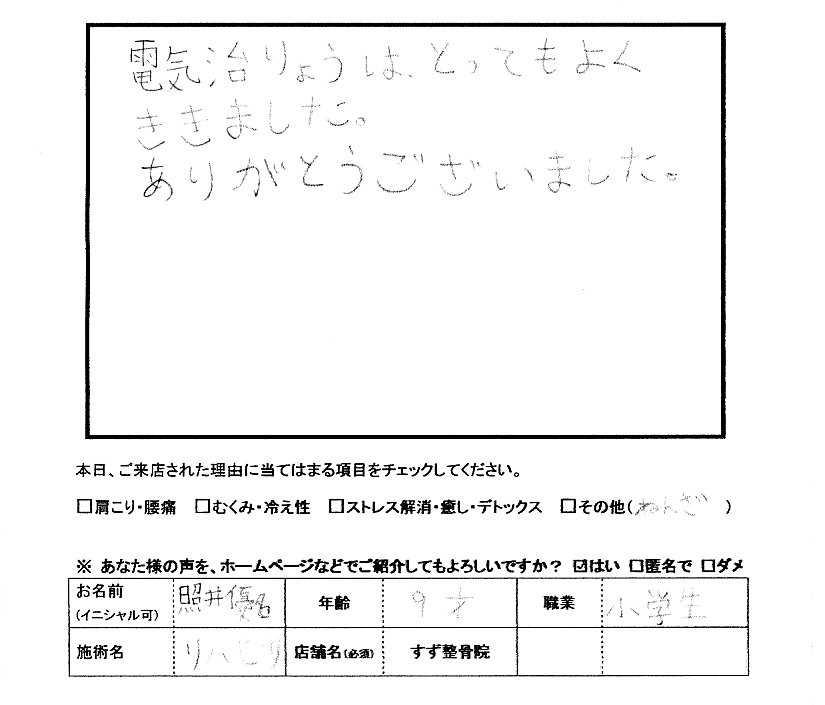 電気治りょうは、とってもよく
ききました。
ありがとうございました。
本日、ご来店された理由に当てはまる項目をチェックしてください。
□肩こり・腰痛 □むくみ・冷え性 □ストレス解消・癒し・デトックス □その他(ねんざ)
※ あなた様の声を、ホームページなどでご紹介してもよろしいですか? ☑はい □匿名で □ダメ
お名前 (イニシャル可) 照井優 年齢 9才 職業 小学生
施術名 リハビリ 店舗名(必須) すず整骨院